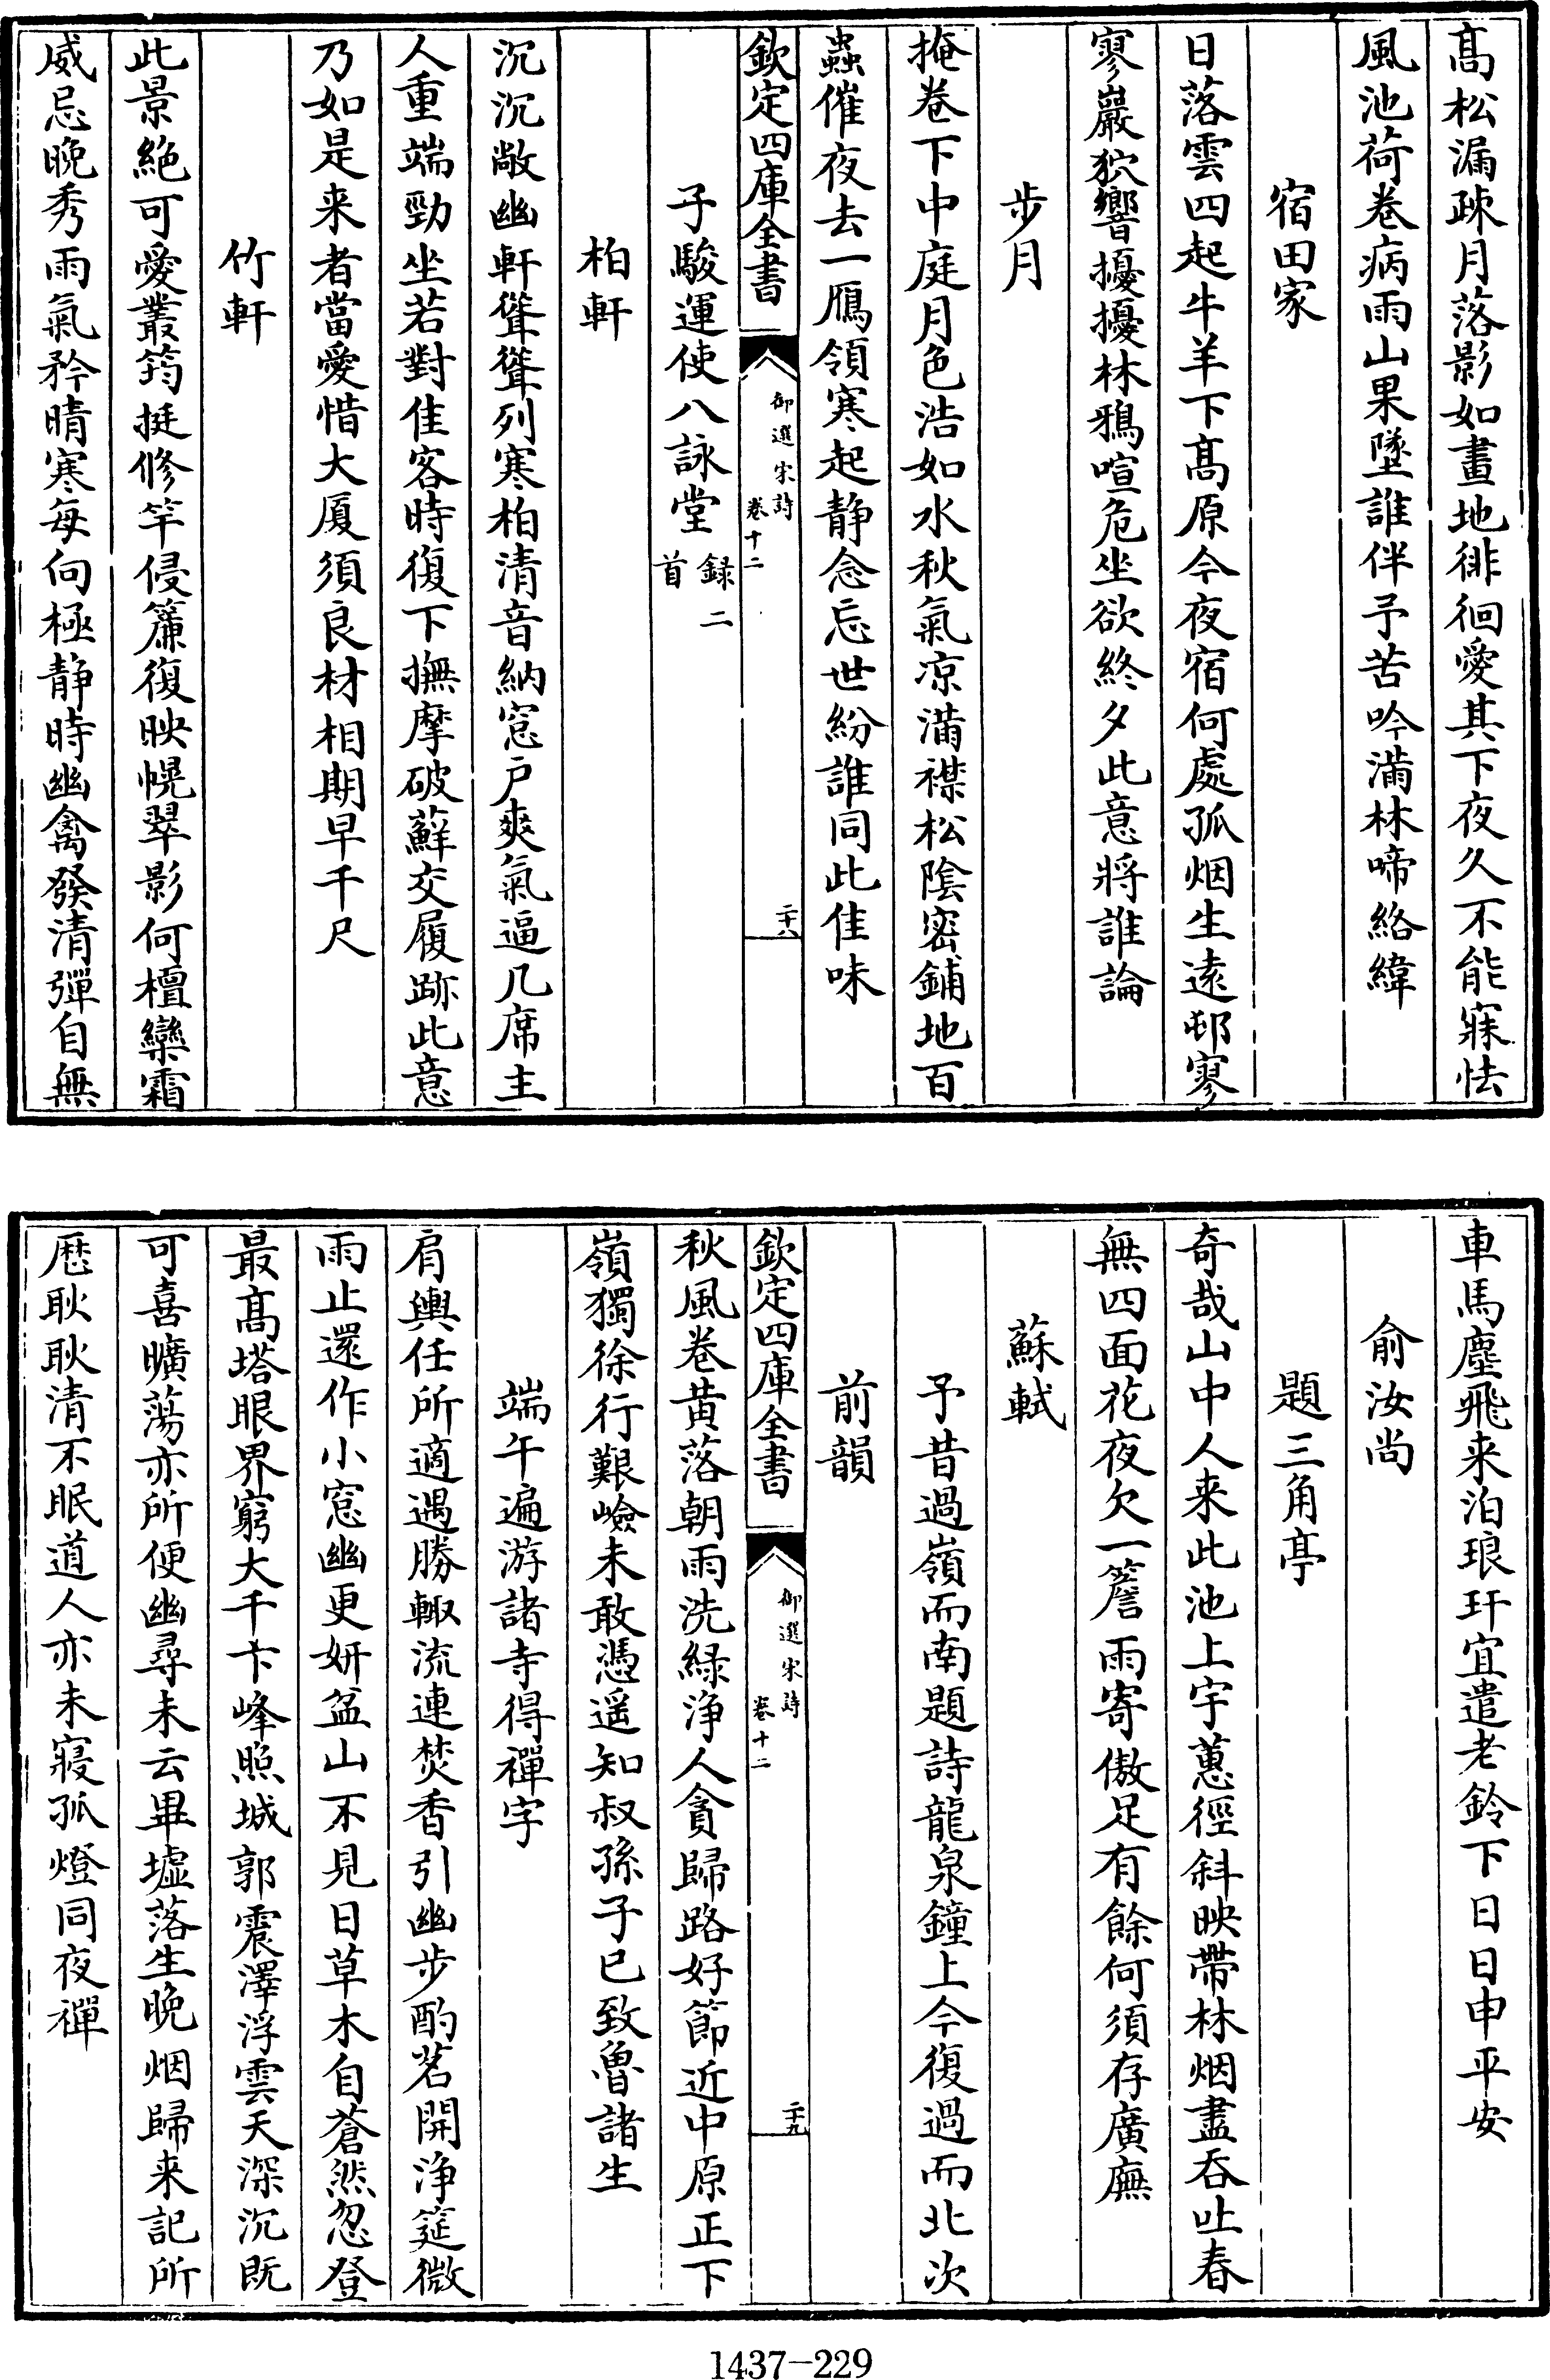 髙松漏疎月落影如畫地徘徊愛其下夜久不能寐怯
風池荷卷病雨山果墜誰伴予苦吟滿林啼絡緯
宿田家
日落雲四起牛羊下髙原今夜宿何處孤烟生逺邨寥
寥巖狖響擾擾林鴉喧危坐欲終夕此意將誰論
步月
掩卷下中庭月色浩如水秋氣凉滿襟松隂密鋪地百
蟲催夜去一鴈領寒起静念忘世紛誰同此佳味
欽定四庫全書
御選宋詩
卷十二
二十八
子駿運使八詠堂録二首
柏軒
沉沉敞幽軒聳聳列寒柏清音納窓戶爽氣逼几席主
人重端勁坐若對佳客時復下撫摩破蘚交履跡此意
乃如是来者當愛惜大厦須良材相期早千尺
竹軒
此景絶可愛叢筠挺修竿侵簾復映幌翠影何檀欒霜
威忌晚秀雨氣矜晴寒每向極静時幽禽發清彈自無
車馬塵飛来泊琅玕宜遣老鈴下日日申平安
俞汝尚
題三角亭
奇哉山中人来此池上宇蕙徑斜映帶林烟盡吞吐春
無四面花夜欠一簷雨寄傲足有餘何須存廣廡
蘇軾
予昔過嶺而南題詩龍泉鐘上今復過而北次
前韻
欽定四庫全書
御選宋詩
卷十二
二十九
秋風卷黄落朝雨洗緑浄人貪歸路好節近中原正下
嶺獨徐行艱嶮未敢憑遥知叔孫子已致魯諸生
端午遍游諸寺得禪字
肩輿任所適遇勝輒流連焚香引幽步酌茗開浄筵微
雨止還作小窓幽更妍盆山不見日草木自蒼然忽登
最髙塔眼界窮大千卞峰照城郭震澤浮雲天深沉既
可喜曠蕩亦所便幽尋未云畢墟落生晚烟歸来記所
歴耿耿清不眠道人亦未寢孤燈同夜禪
1437-229